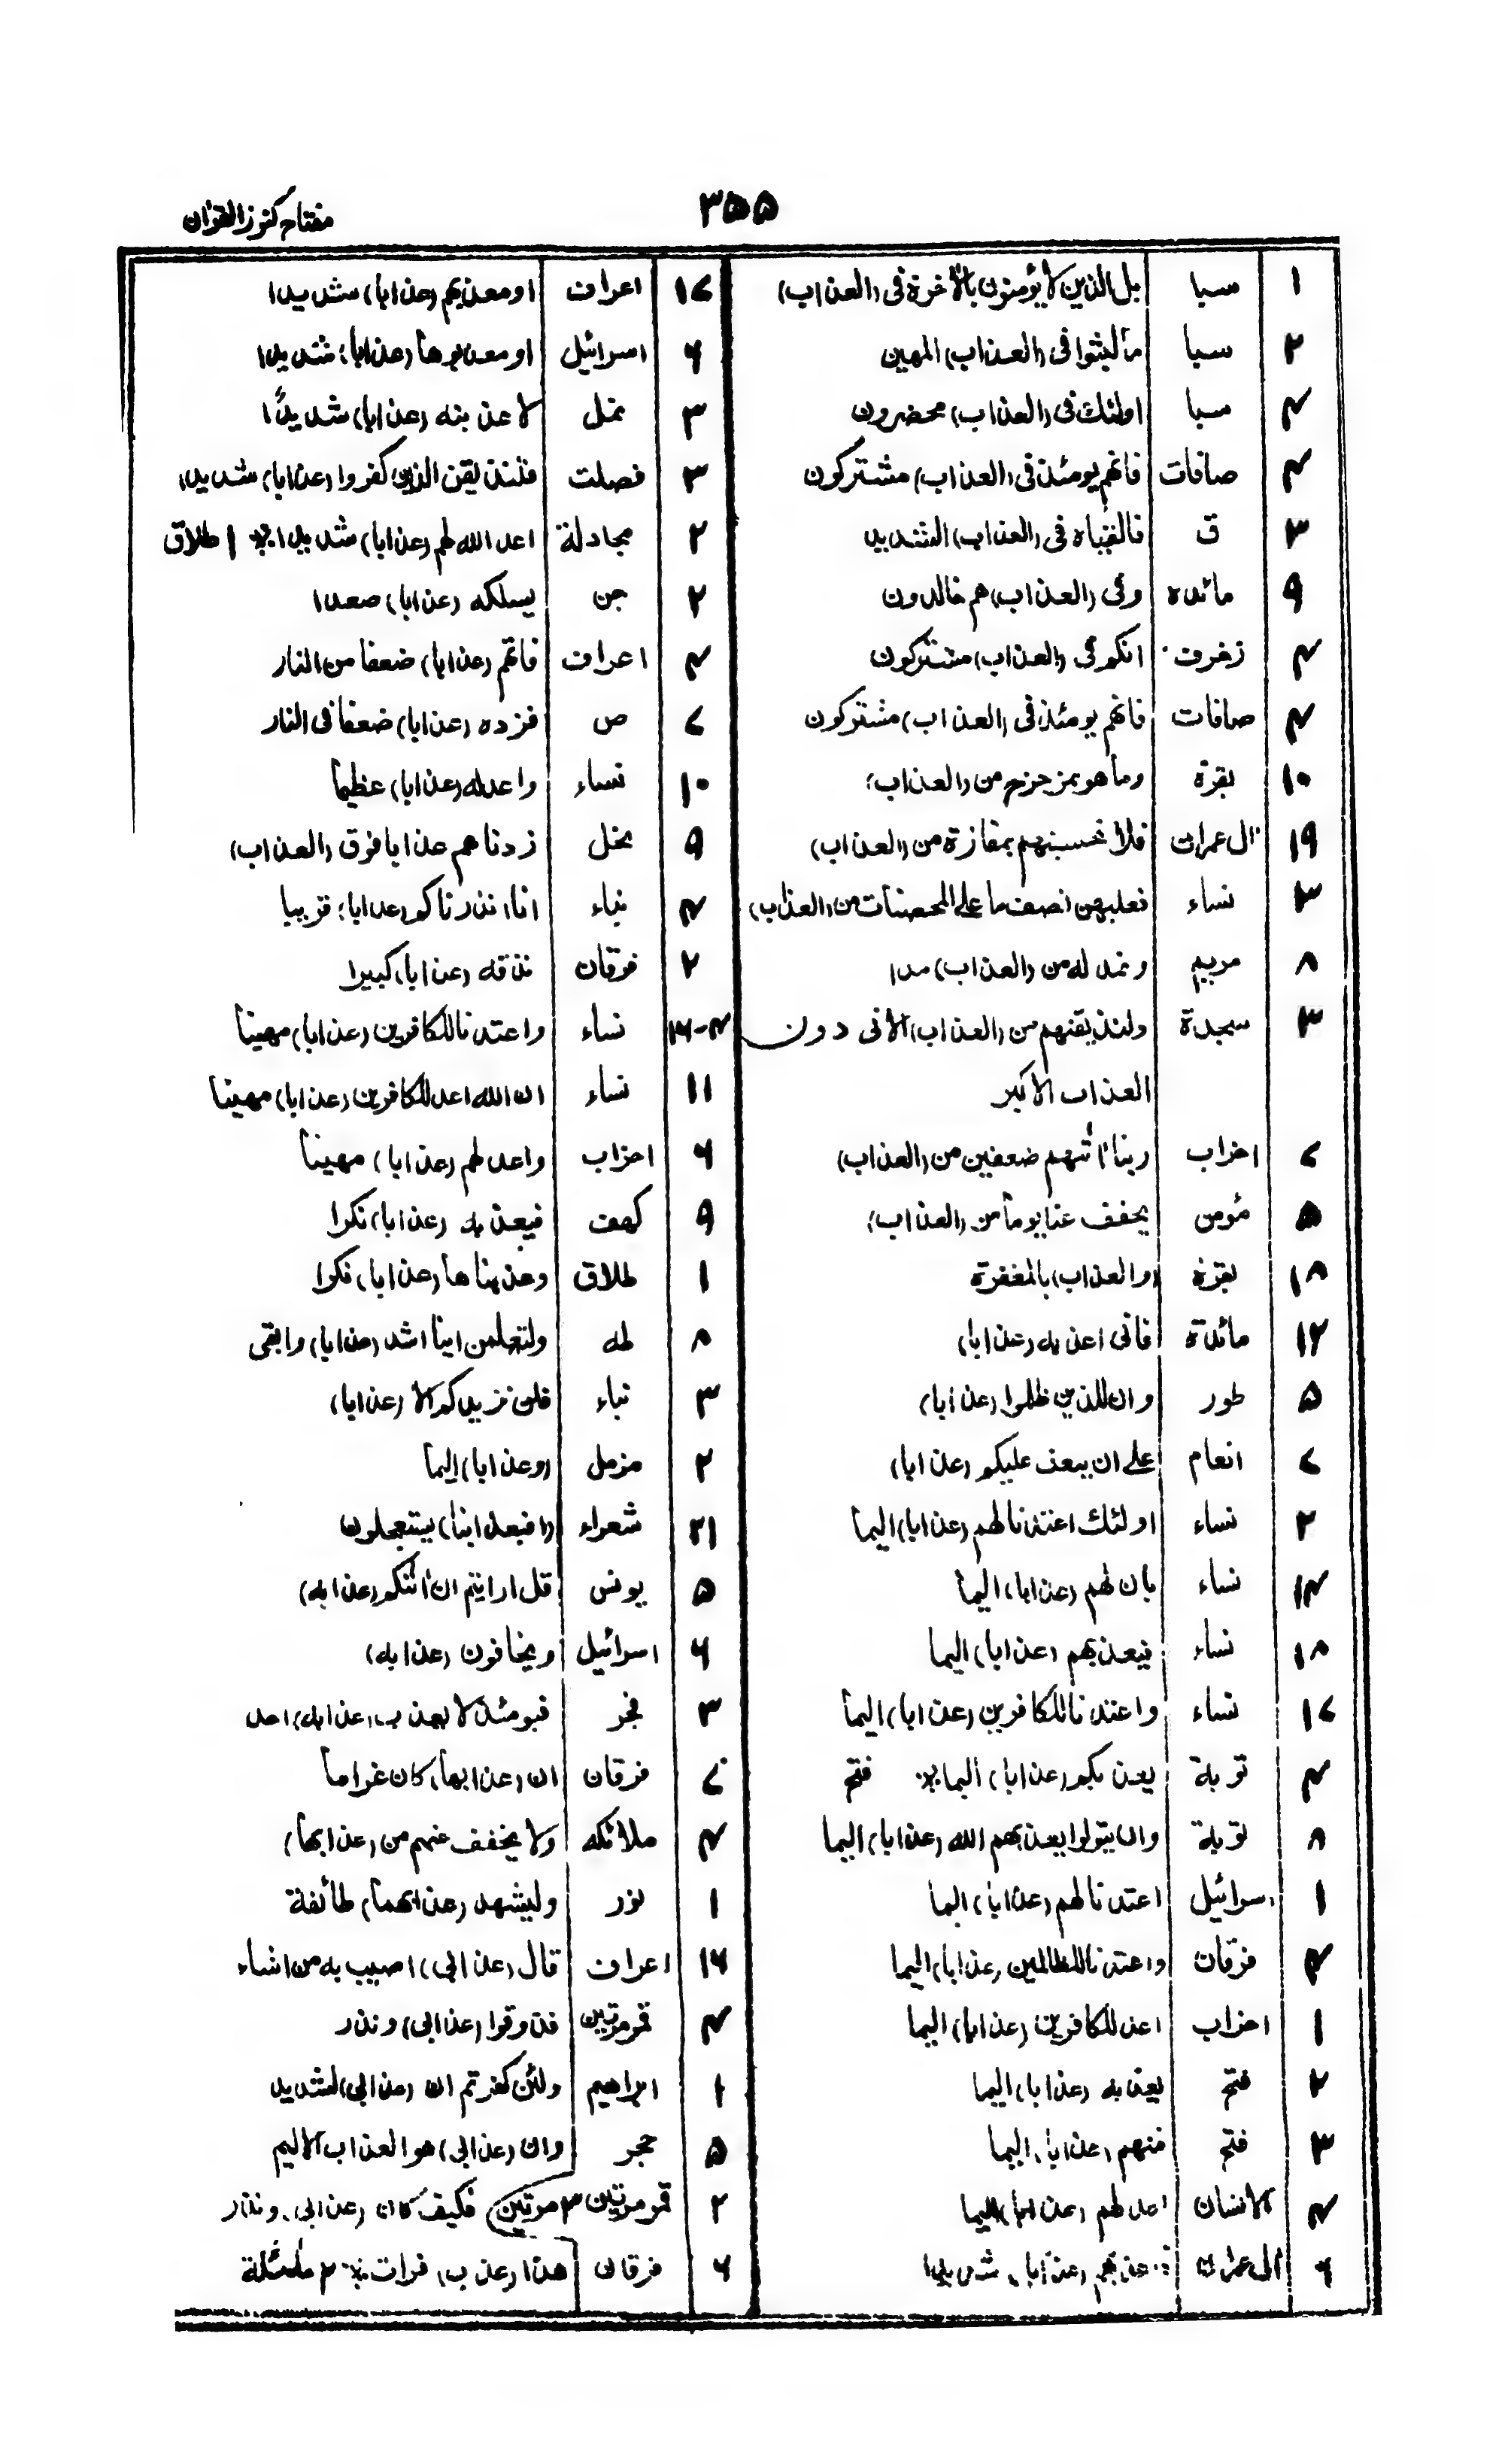 ۳۵۵
مفتاح کنوز القرآن
۱ سبا بل الذین لا یؤمنون بالآخرة فی (العذاب)
۲ سبا ما لبثوا فی (العذاب) المهین
۴ سبا اولئك فی (العذاب) محضرون
۴ صافات فانهم یومئذ فی (العذاب) مشترکون
۳ ق فالقیاه فی (العذاب) الشدید
۹ مائده وفی (العذاب) هم خالدون
۴ زخرف انکم فی (العذاب) مشترکون
۴ صافات فانهم یومئذ فی (العذاب) مشترکون
۱۰ بقرة وما هو بمزحزح من (العذاب)
۱۹ ال عمران فلا تحسبنهم بمفازة من (العذاب)
۳ نساء فعلیهن نصف ما علی المحصنات من (العذاب)
۸ مریم ونمد له من (العذاب) مدا
۳ سجدة ولنذیقنهم من (العذاب) الادنی دون
العذاب الاکبر
۷ احزاب ربنا آتهم ضعفین من (العذاب)
۵ مؤمن یخفف عنا یوما من (العذاب)
۱۸ بقرة (والعذاب) بالمغفرة
۱۲ مائدة فانی اعذبه (عذابا)
۵ طور وان للذین ظلموا (عذابا)
۷ انعام علی ان یبعث علیکم (عذابا)
۲ نساء اولئك اعتدنا لهم (عذابا) الیما
۱۴ نساء بان لهم (عذابا) الیما
۱۸ نساء فیعذبهم (عذابا) الیما
۱۷ نساء واعتدنا للکافرین (عذابا) الیما
۴ توبة یعذبکم (عذابا) الیما فتح
۸ توبة وان یتولوا یعذبهم الله (عذابا) الیما
۱ اسرائیل اعتدنا لهم (عذابا) الیما
۴ فرقان واعتدنا للظالمین (عذابا) الیما
۱ احزاب اعد للکافرین (عذابا) الیما
۲ فتح یعذبه (عذابا) الیما
۳ فتح منهم (عذابا) الیما
۴ الانسان اعد لهم (عذابا) الیما
۶ ال عمران (عذابا) شدیدا
۱۷ اعراف او معذبهم (عذابا) شدیدا
۶ اسرائیل او معذبوها (عذابا) شدیدا
۳ نمل لاعذبنه (عذابا) شدیدا
۳ فصلت فلنذیقن الذین کفروا (عذابا) شدیدا
۲ مجادلة اعد الله لهم (عذابا) شدیدا ۱ طلاق
۲ جن یسلکه (عذابا) صعدا
۴ اعراف فاتهم (عذابا) ضعفا من النار
۷ ص فزده (عذابا) ضعفا فی النار
۱۰ نساء واعد له (عذابا) عظیما
۹ نحل زدناهم عذابا فوق (العذاب)
۴ نباء انا انذرناکم (عذابا) قریبا
۲ فرقان نذقه (عذابا) کبیرا
۴-۱۶ نساء واعتدنا للکافرین (عذابا) مهینا
۱۱ نساء ان الله اعد للکافرین (عذابا) مهینا
۶ احزاب واعد لهم (عذابا) مهینا
۹ کهف فیعذبه (عذابا) نکرا
۱ طلاق وعذبناها (عذابا) نکرا
۸ طه ولتعلمن اینا اشد (عذابا) وابقی
۳ نباء فلن نزیدکم الا (عذابا)
۲ مزمل (وعذابا) الیما
۲۱ شعراء (افبعذابنا) یستعجلون
۵ یونس قل ارایتم ان اتٰکم (عذابه)
۶ اسرائیل ویخافون (عذابه)
۳ فجر فیومئذ لا یعذب (عذابه) احد
۷ فرقان ان (عذابها) کان غراما
۴ ملائکه ولا یخفف عنهم من (عذابها)
۱ نور ولیشهد (عذابهما) طائفة
۱۶ اعراف قال (عذابی) اصیب به من اشاء
۴ قمر مرتین فذوقوا (عذابی) ونذر
۱ ابراهیم ولئن کفرتم ان (عذابی) لشدید
۵ حجر وان (عذابی) هو العذاب الالیم
۲ قمر مرتین ۳ مرتین فکیف کان (عذابی) ونذر
۶ فرقان هذا (عذب) فرات ۲ ملئکة